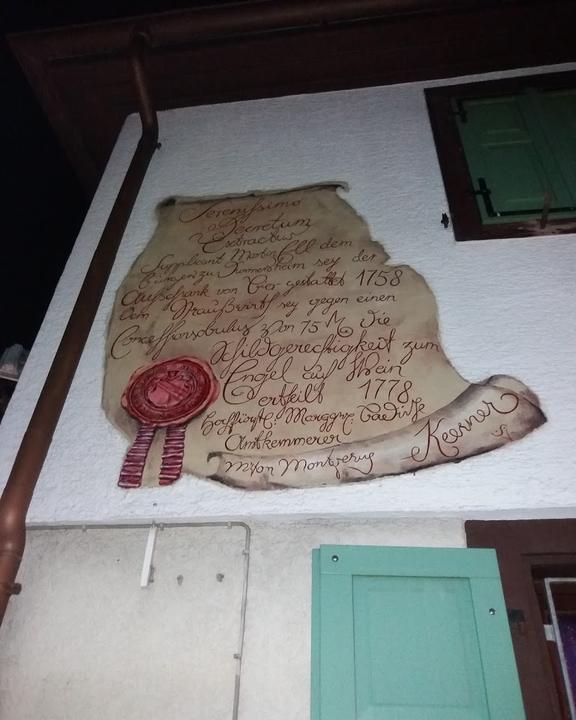 Serenissimo
Decretum
Extractus
Supplicant Martin Ell dem
Burger zu Sommersheim sey der
Außschank von Bier gestattet 1758
Dem Straußwirth sey gegen einen
Concessionsobulus von 75 die
Schildgerechtigkeit zum
Engel auf Wein
erteilt 1778
Hoffürstl. Marggrv. Badisch
Amtkemmerer
Keerner